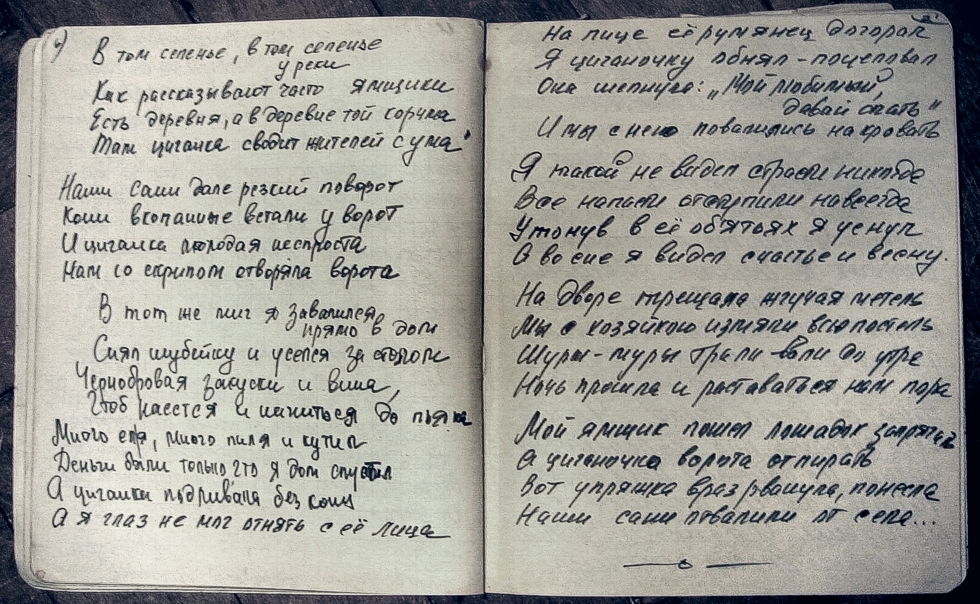 9)
В том селенье, в том селенье
у реки
Как рассказывают часто ямщики
Есть деревня, а в деревне той корчма
Там циганка сводит жителей с ума"
Наши сани дале резкий поворот
Кони вкопанные встали у ворот
И циганка молодая неспроста
Нам со скрипом отворяла ворота
В тот же миг я завалился
прямо в дом
Снял шубейку и уселся за столом
Чернобровая закуски и вина,
Чтоб наестся и напиться до пьяна
Много ел я, много пил я и кутил
Деньги были только что я дом спустил
А циганка подливала без конц
А я глаз не мог отнять с её лица
На лице её румянец догорал
Я циганочку обнял - поцеловал
Она шепнула: „Мой любимый,
давай спать"
И мы с нею повалились на кровать
Я такой не видел страсти никогда
Все напасти отступили навсегда
Утонув в её объятьях я уснул
А во сне я видел счастье и весну.
На дворе трещала жгучая метель
Мы с хозяйкою измяли всю постель
Шуры-муры трали-вали до утра
Ночь прошла и раставаться нам пора
Мой ямщик пошел лошадок запрягать
А циганочка ворота отпирать
Вот упряжка враз рванула, понесла
Наши сани отвалили от села...